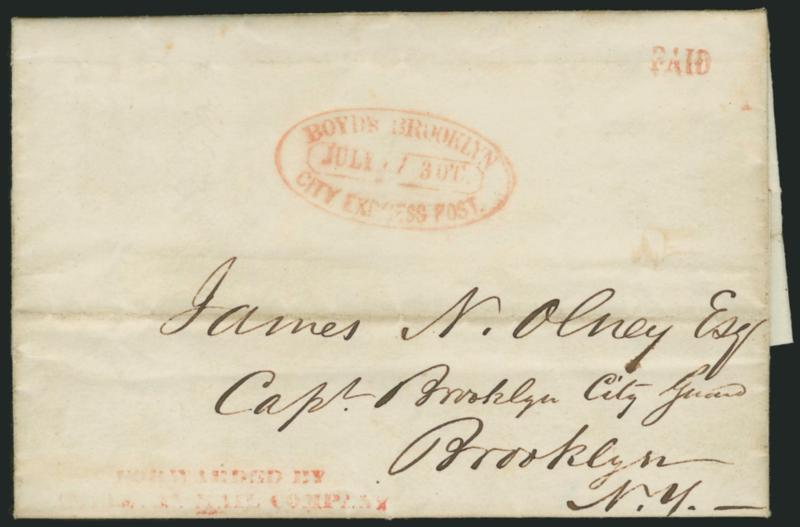 PAID
BOYD'S BROOKLYN
JULY 3 O'C.
CITY EXPRESS POST.
James N. Olney Esq
Capt. Brooklyn City Guard
Brooklyn
N.Y.
FORWARDED BY
MAIL COMPANY